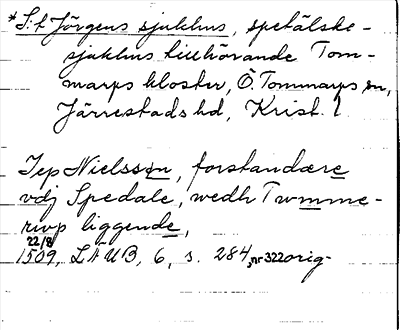 *S:t Jörgens sjukhus, spetälske-
sjukhus tillhörande Tom-
marps kloster, Ö. Tommarps sn,
Järrestads hd, Krist. l.
Jep Nielssøn, forstandære
vdj Spedale, wedh Twmme-
rwp liggende,
22/8
1509, LÄUB, 6, s. 284, nr 322 orig-